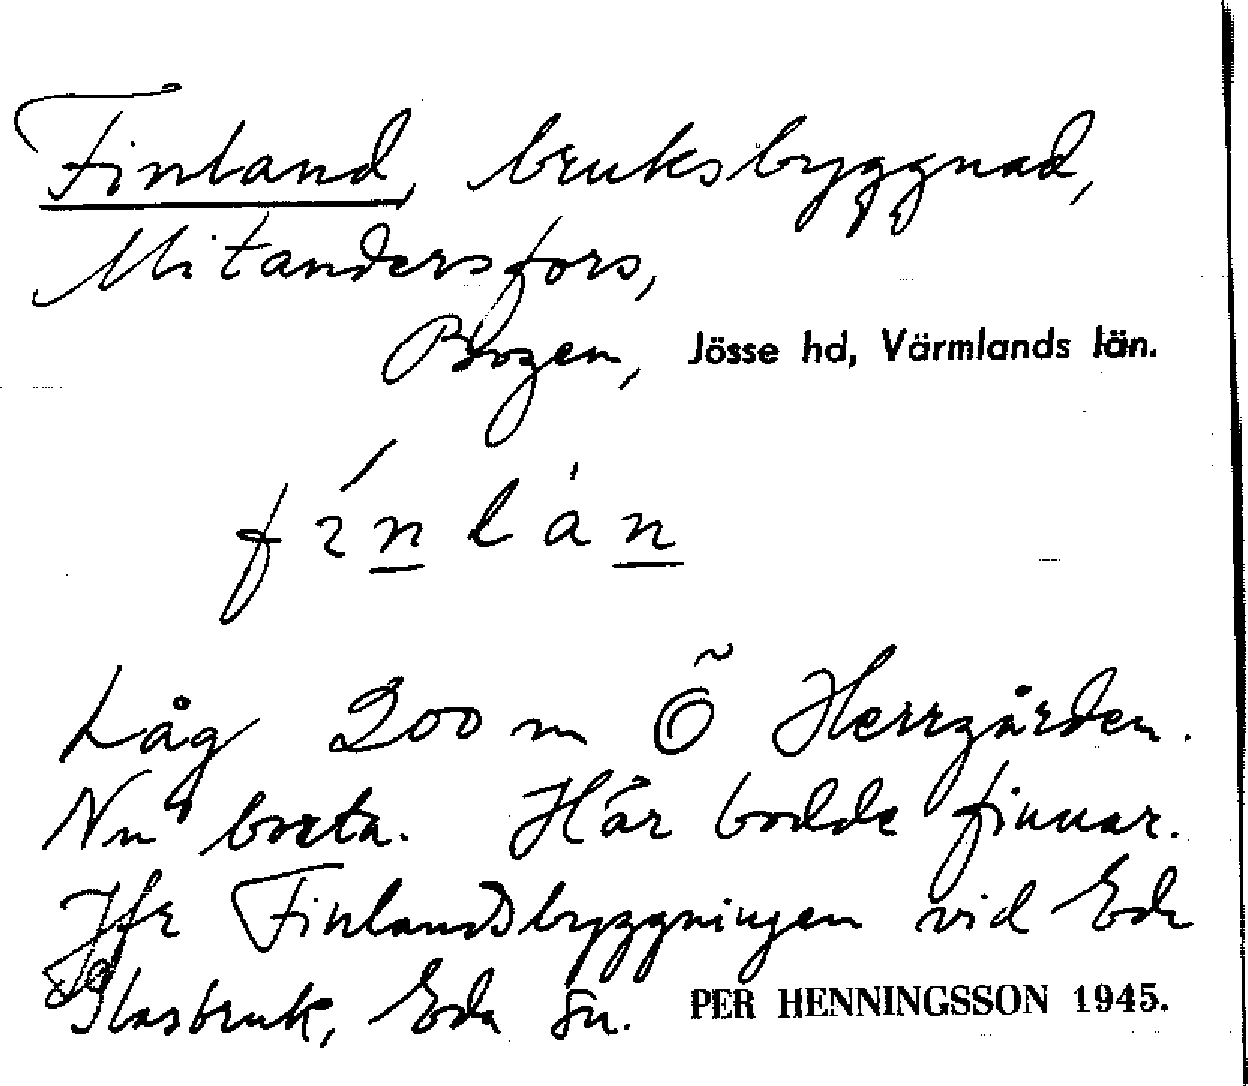 Finland, bruksbyggnad,
Mitandersfors,
Bogen, Jösse hd, Värmlands län.
fínlàn
Låg 200 m Ö Herrgården.
Nu borta. Här bodde finnar.
Jfr Finlandsbyggningen vid Eda
Glasbruk, Eda sn. PER HENNINGSSON 1945.